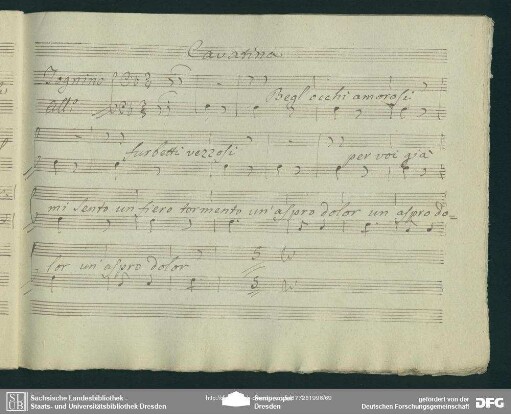 Cavatina
Begl'occhi amorosi
All:o
furbetti vezzosi per voi già
mi sento un fiero tormento un'aspro dolor un aspro do=
lor un'aspro dolor
Sächsische Landesbibliothek -
Staats- und Universitätsbibliothek Dresden
gefördert von der
Deutschen Forschungsgemeinschaft
DFG